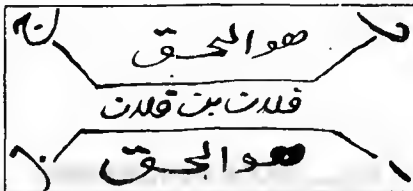 هو البحق
فلان بن فلان
هو البحق